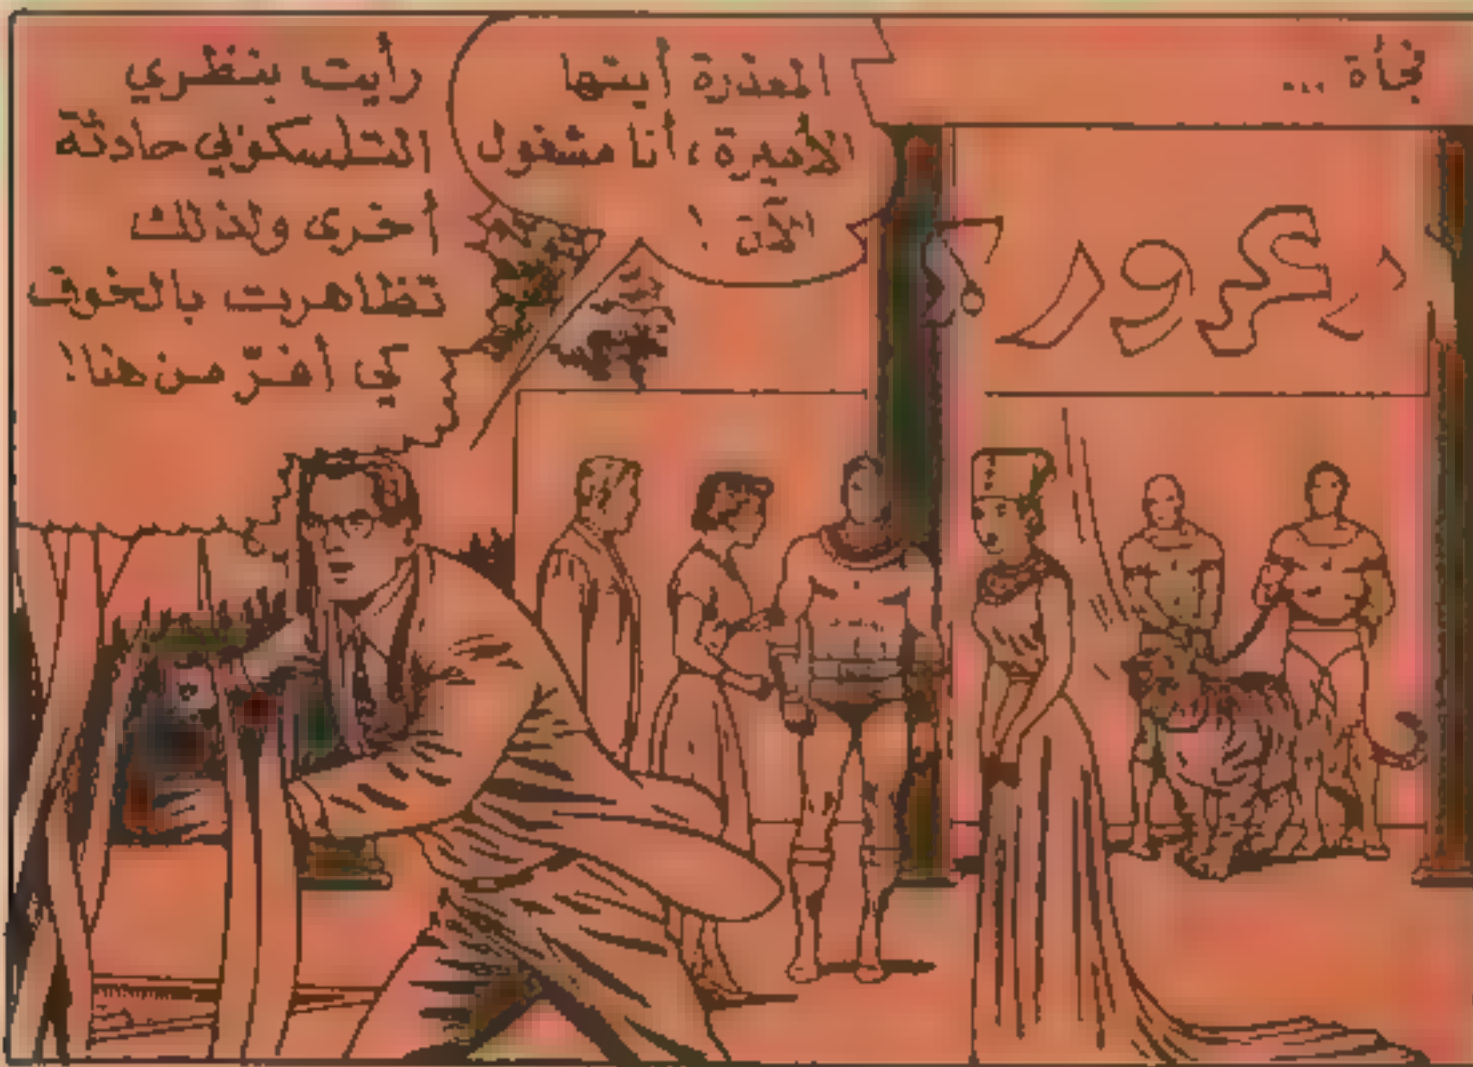 فجأة ...
المعذرة أيتها
الأميرة ، أنا مشغول
الآن !
رأيت بنظري
التلسكوبي حادثة
أخرى ولذلك
تظاهرت بالخوف
كي أفرّ من هنا!